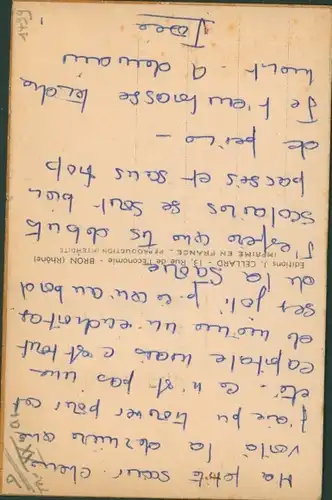 Ma petite sœur chérie
voilà la dernière que
j'aie pu trouver pour cet
été. Ce n'est pas une
capitale mais c'est tout
de même un endroit as
sez joli p.c.q. au bord
de la Saône
Editions J. CELLARD, 13, Rue de l'Economie - BRON (Rhône)
IMPRIMÉ EN FRANCE - REPRODUCTION INTERDITE
J'espère que tes débuts
scolaires se sont bien
passés et sans trop
de peine -
Je t'embrasse tendre
ment - à demain